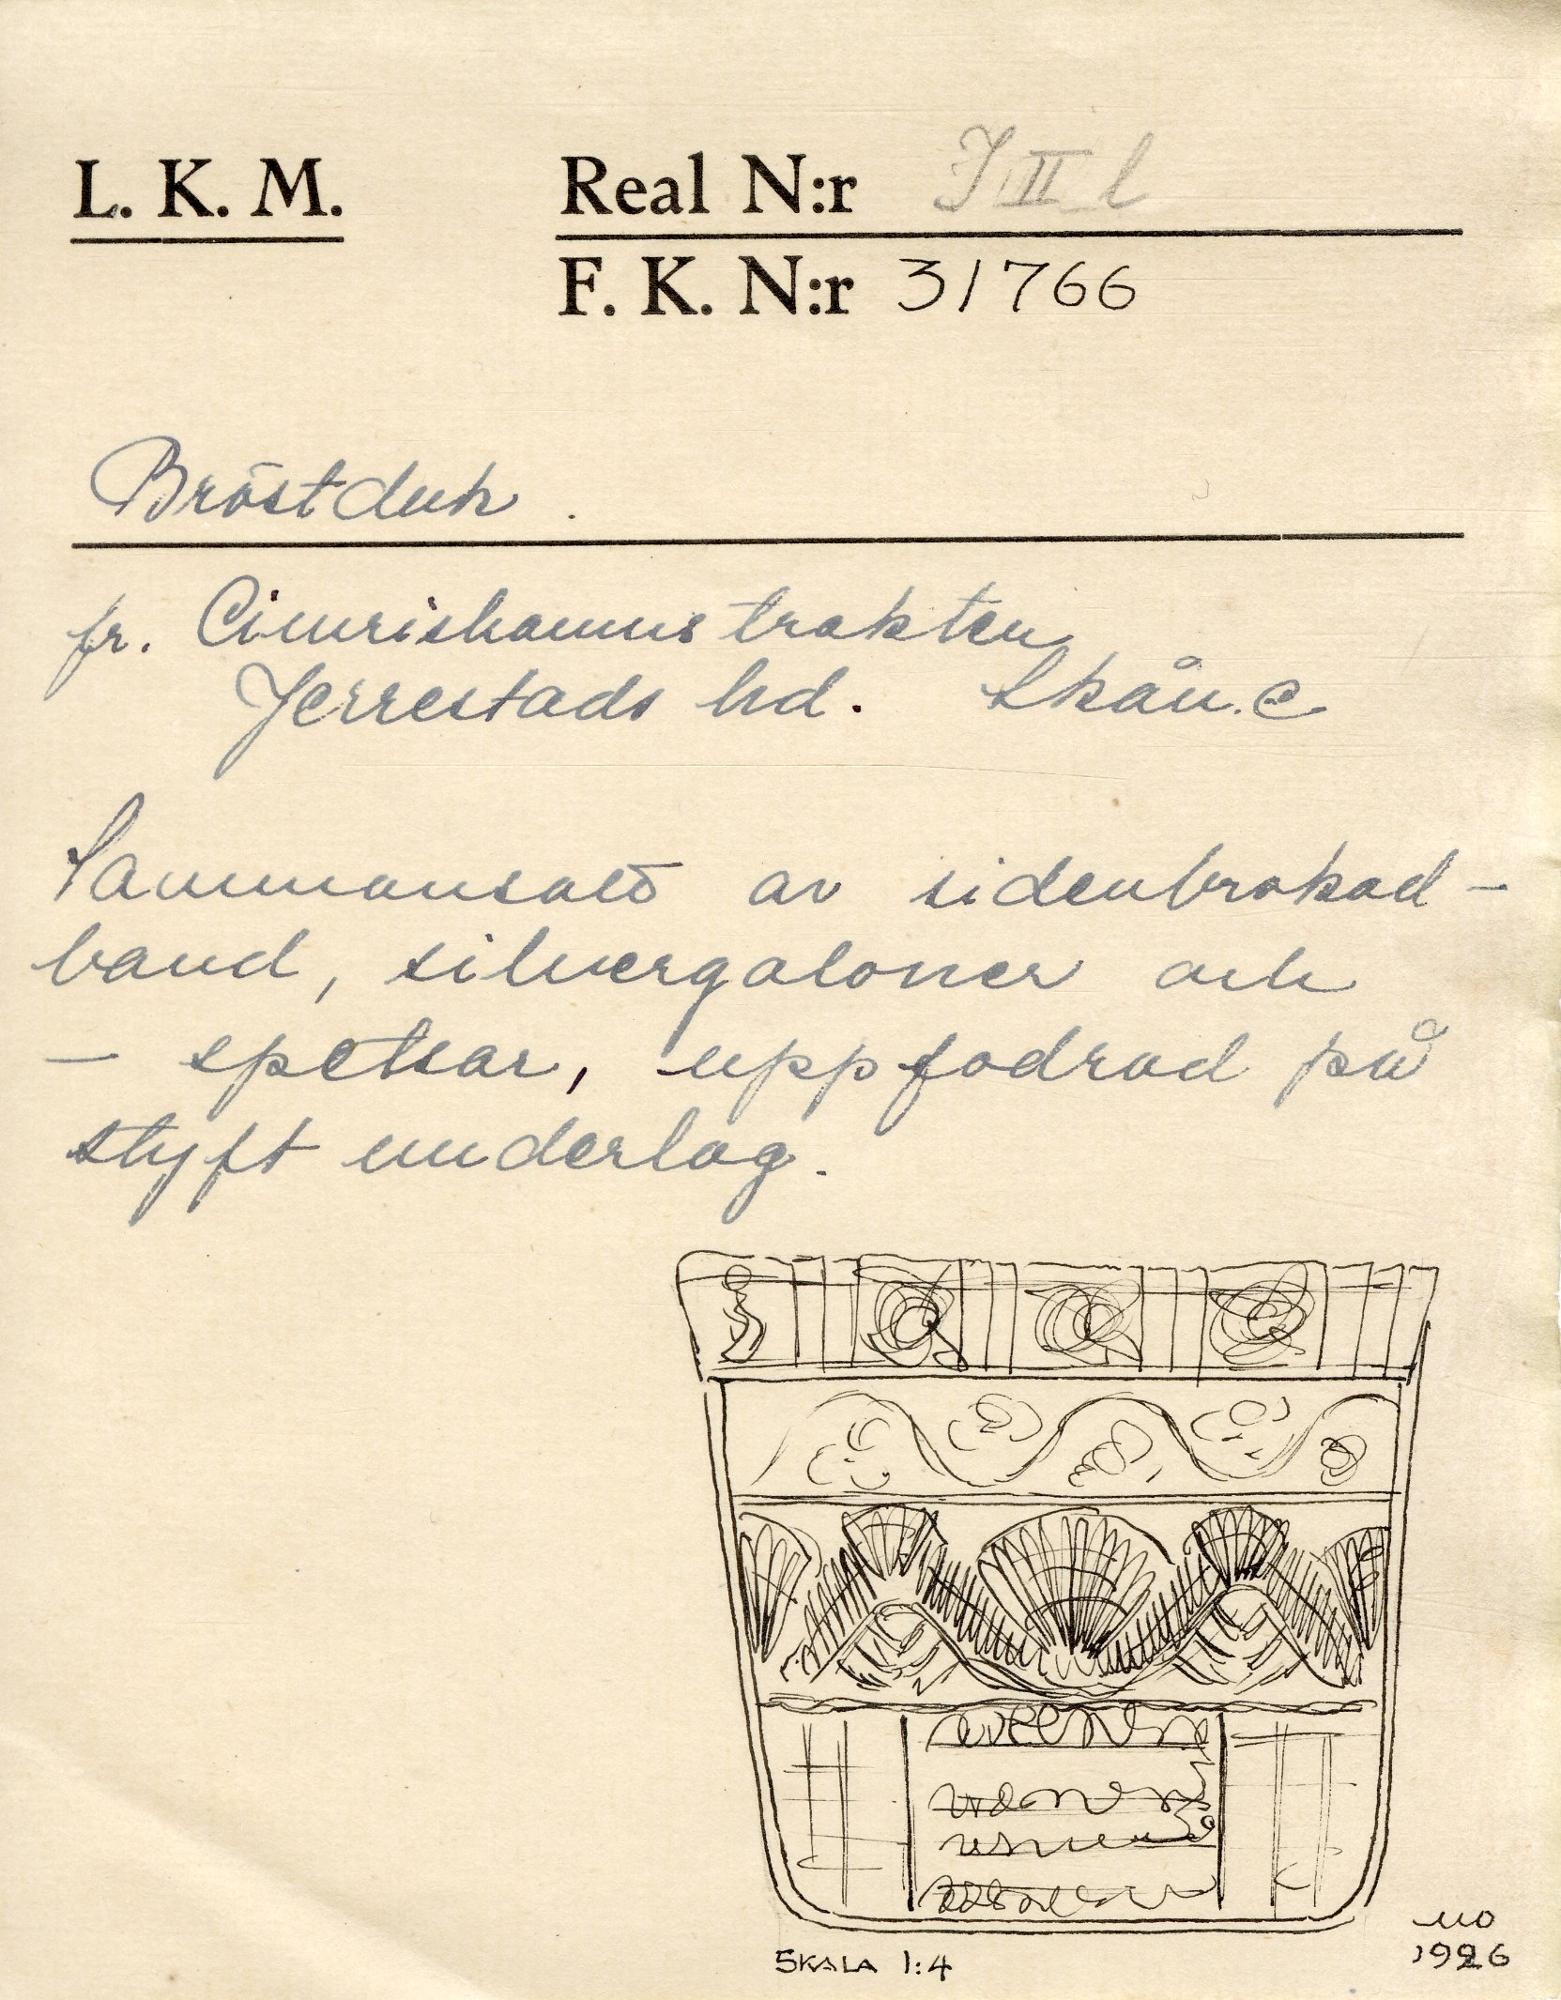 L. K. M.
Real N:r J II l
F. K. N:r 31766
Bröstduk.
fr. Cimrishamnstrakten
Jerrestads hd. Skåne
Sammansatt av sidenbrokad-
band, silvergaloner och
- spetsar, uppfodrad på
styft underlag.
SKALA 1:4
MO
1926